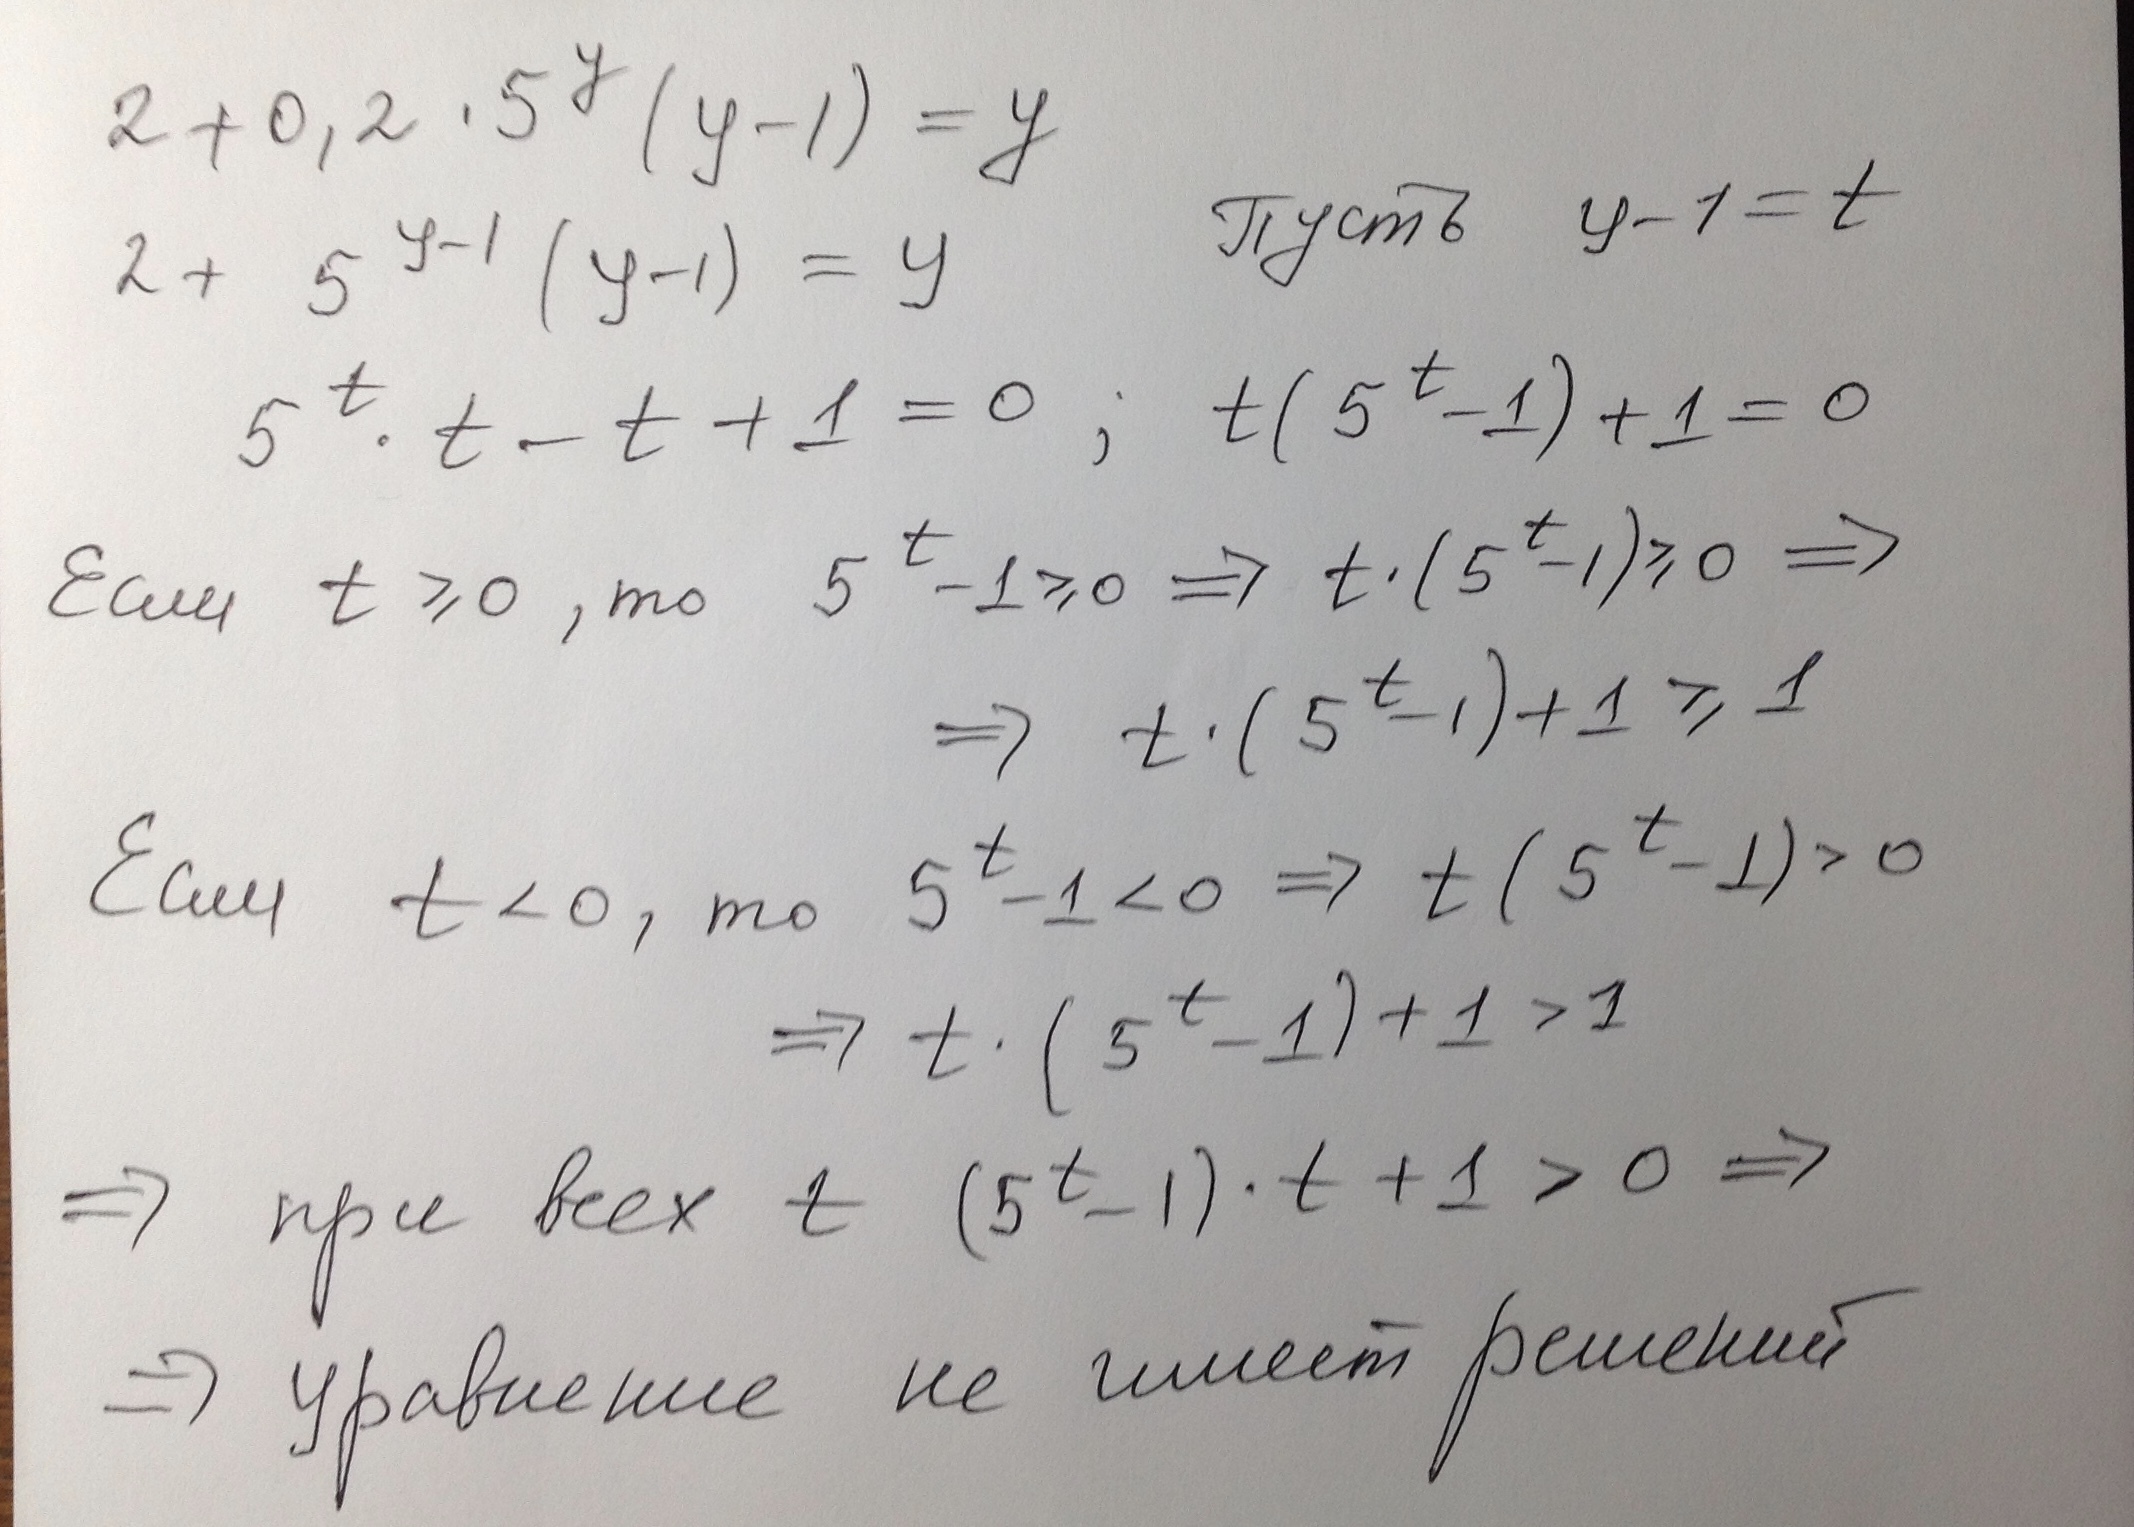 2 + 0,2 · 5^y (y-1) = y
2 + 5^{y-1} (y-1) = y Пусть y-1 = t
5^t · t - t + 1 = 0 ; t(5^t - 1) + 1 = 0
Если t ⩾ 0, то 5^t - 1 ⩾ 0 ⇒ t · (5^t - 1) ⩾ 0 ⇒
⇒ t · (5^t - 1) + 1 ⩾ 1
Если t < 0, то 5^t - 1 < 0 ⇒ t (5^t - 1) > 0
⇒ t · (5^t - 1) + 1 > 1
⇒ при всех t (5^t - 1) · t + 1 > 0 ⇒
⇒ уравнение не имеет решений